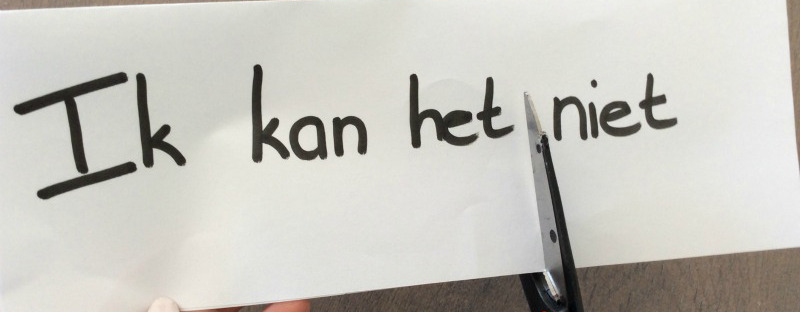 Ik kan het niet